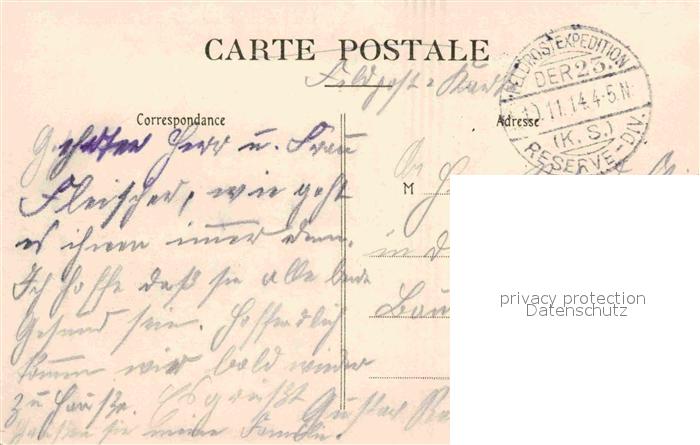 CARTE POSTALE
Feldpost-Karte
FELDPOSTEXPEDITION
DER 23.
11.14.4-5.N
(K. S.)
RESERVE-DIV.
Correspondance
Adresse
Geehrter Herr u. Frau
Fleischer, wie geht
es ihnen immer denn.
Ich hoffe daß sie alle beide
Gesund sein. Hoffendlich
komen wir bald wieder
zu Hauße. Es grüßt Gustav
sie meine Familie.
M
in d
Bau
privacy protection
Datenschutz